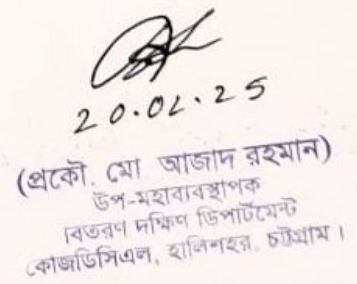 20.02.25
(প্রকৌ. মো আজাদ রহমান)
উপ-মহাব্যবস্থাপক
বিতরণ দক্ষিণ ডিপার্টমেন্ট
কেজিডিসিএল, হালিশহর, চট্টগ্রাম।